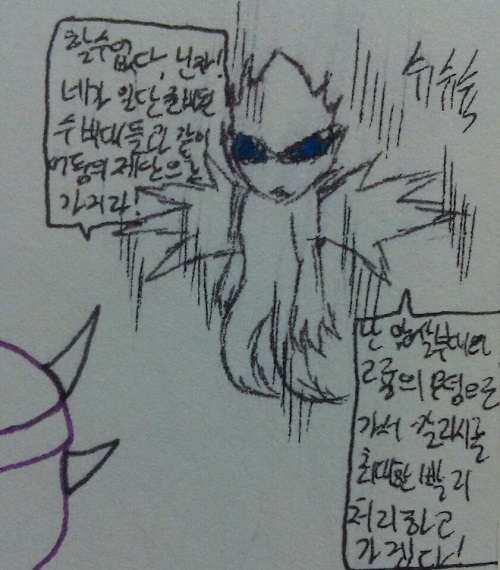 할수없다, 닌자!
네가 일단 준비된
수비대들과 같이
어둠의 제단으로
가거라!
슈슈슉
난 암살부대와
고룡의 무덤으로
가서 칼리시를
최대한 빨리
처리하고
가겠다!